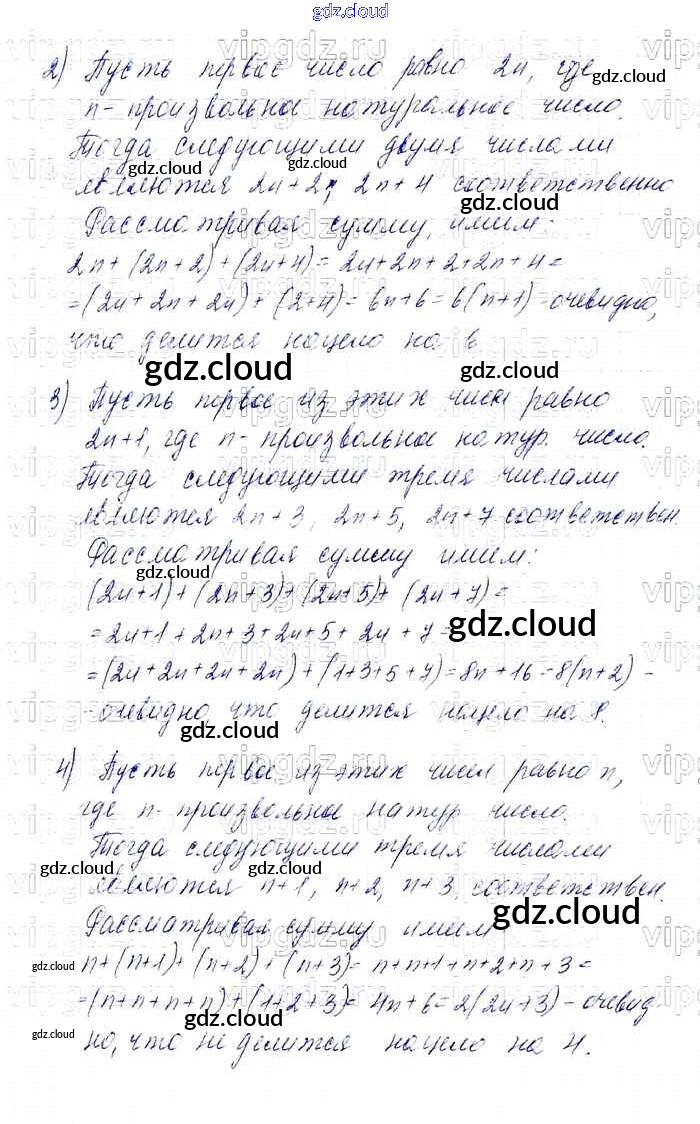 gdz.cloud
2) Пусть первое число равно 2n, где
n - произвольное натуральное число.
Тогда следующими двумя числами
являются 2n+2, 2n+4 соответственно
Рассматривая сумму, имеем:
2n+(2n+2)+(2n+4)=2n+2n+2+2n+4=
=(2n+2n+2n)+(2+4)=6n+6=6(n+1)-очевидно,
что делится нацело на 6
3) Пусть первое из этих чисел равно
2n+1, где n - произвольное натур. число.
Тогда следующими тремя числами
являются 2n+3, 2n+5, 2n+7 соответствен.
Рассматривая сумму имеем:
(2n+1)+(2n+3)+(2n+5)+(2n+7)=
=2n+1+2n+3+2n+5+2n+7=
=(2n+2n+2n+2n)+(1+3+5+7)=8n+16=8(n+2)-
-очевидно, что делится нацело на 8.
4) Пусть первое из этих чисел равно n,
где n - произвольное натур число.
Тогда следующими тремя числами
являются n+1, n+2, n+3 соответствен.
Рассматривая сумму имеем
n+(n+1)+(n+2)+(n+3)=n+n+1+n+2+n+3=
=(n+n+n+n)+(1+2+3)=4n+6=2(2n+3)-очевид-
но, что не делится нацело на 4.